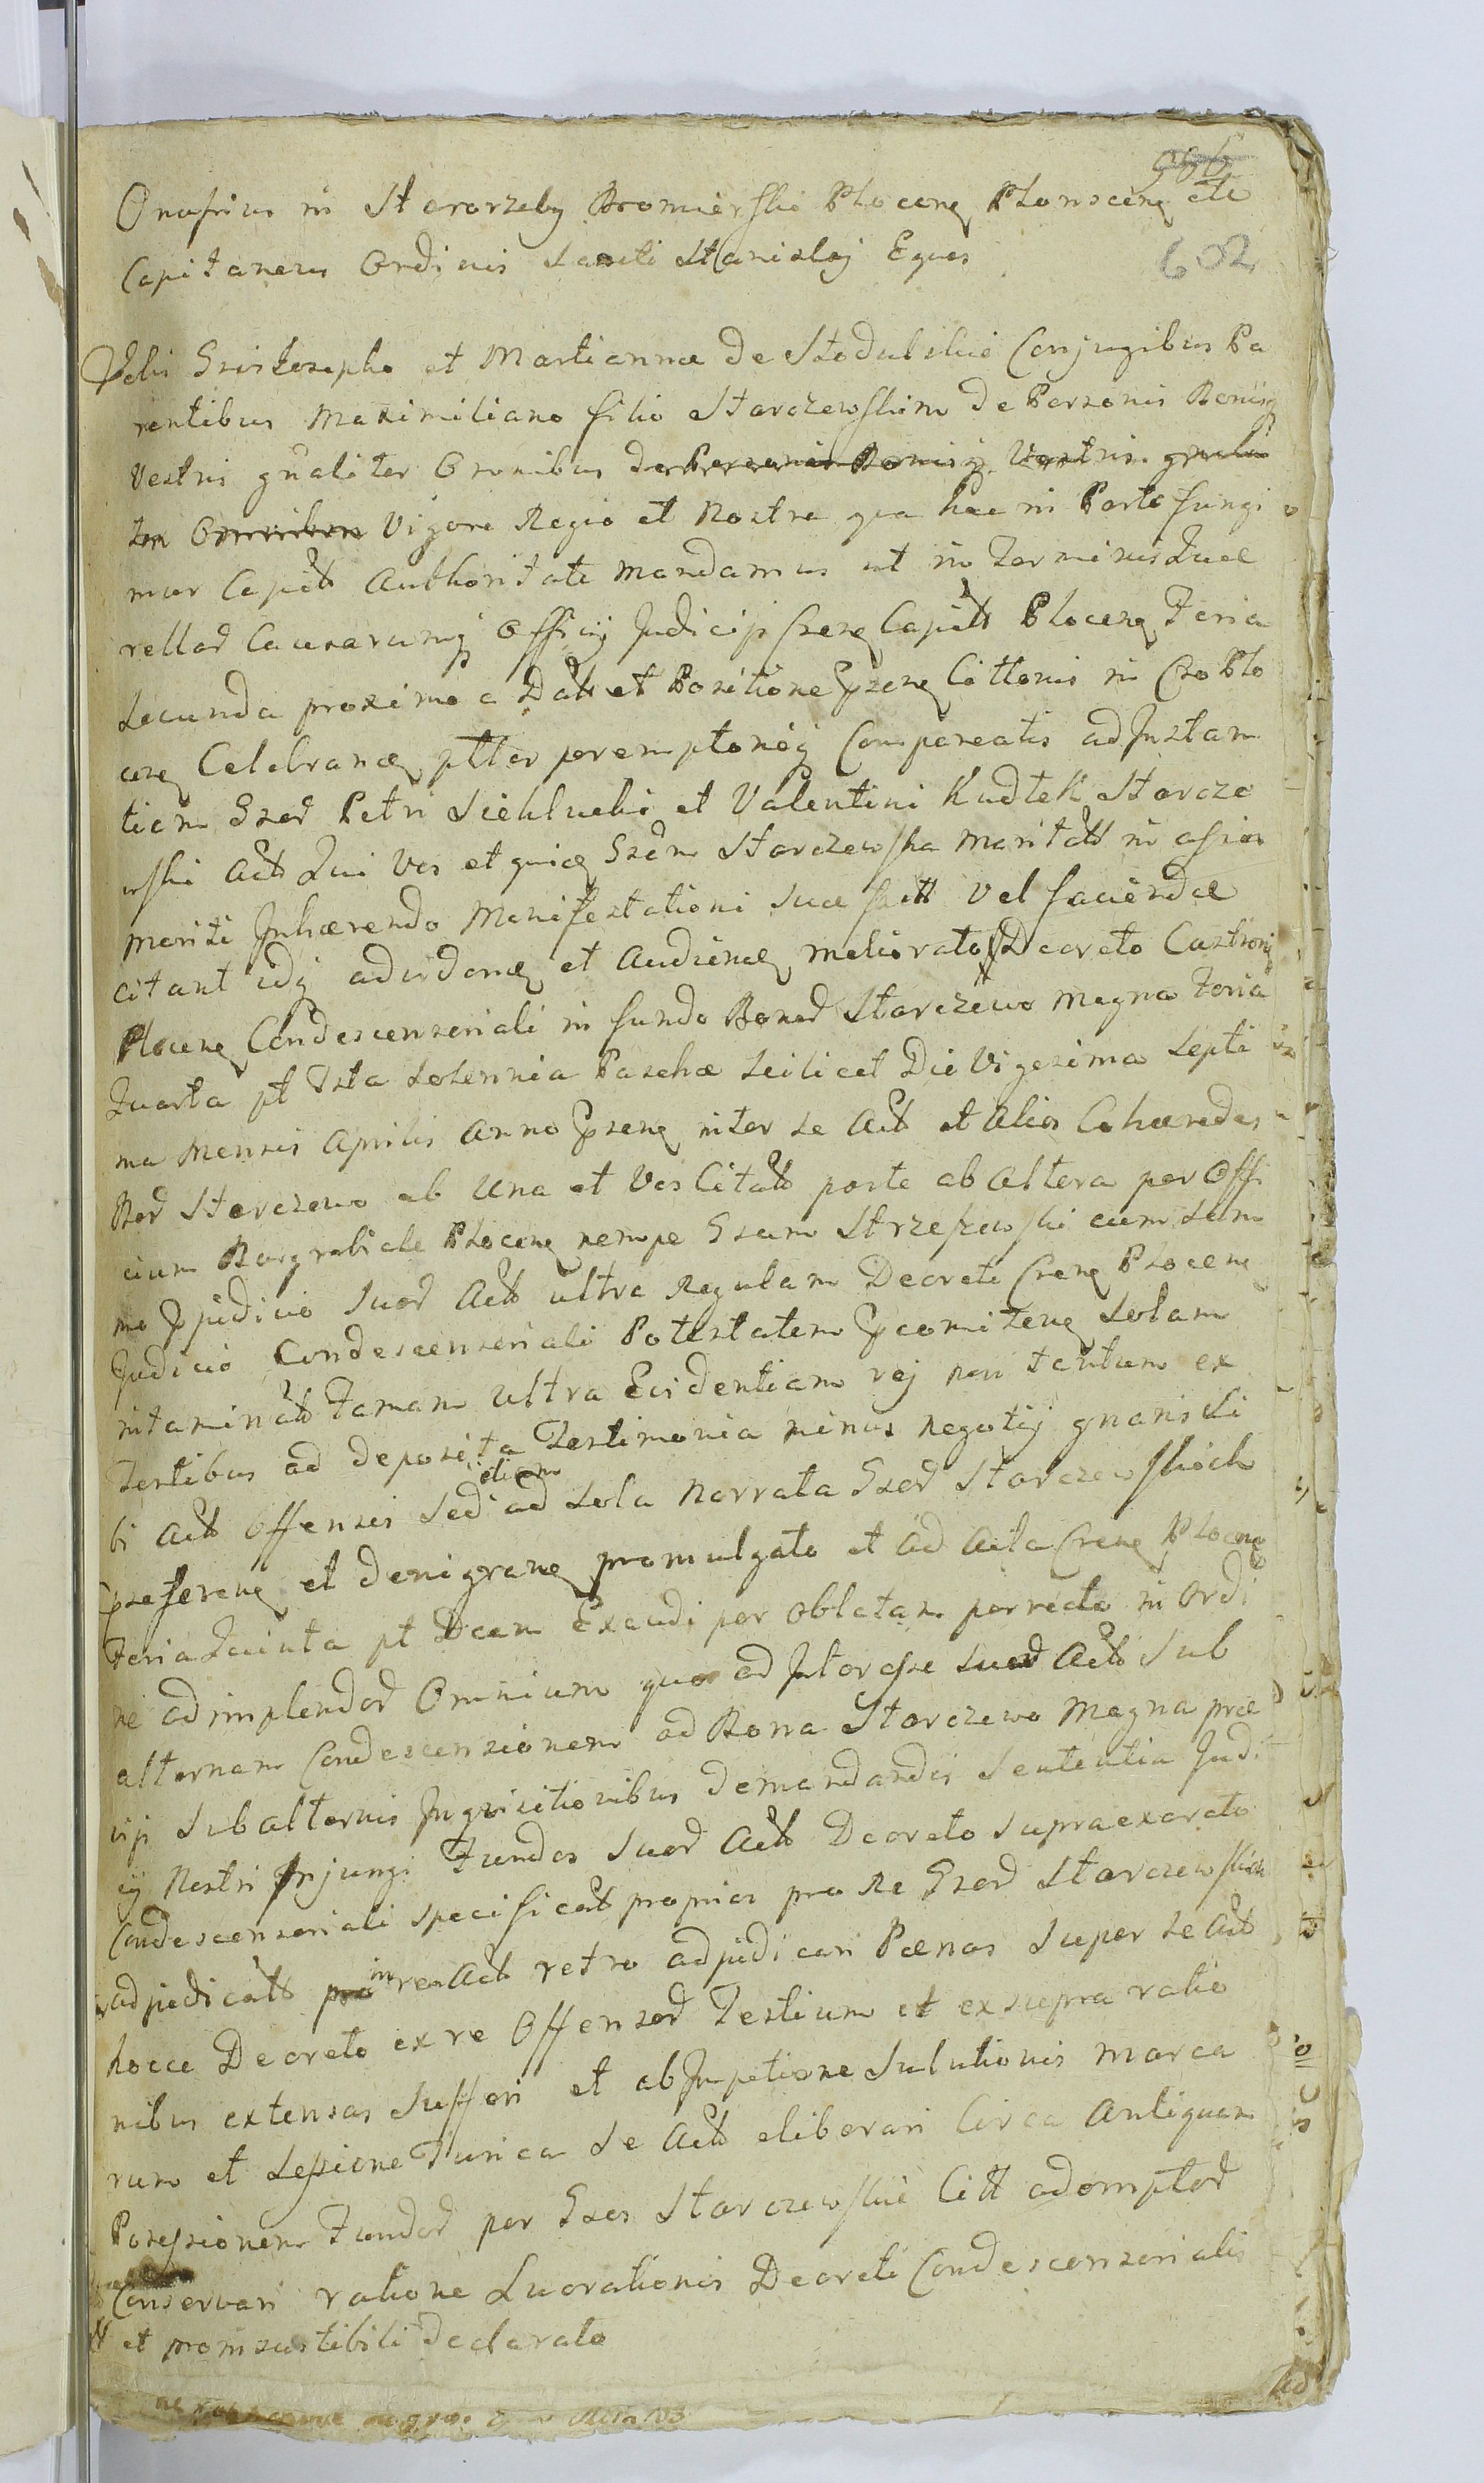 906
Onufrius in Starorzeby Bromierski Plocen Plonscen etc
602
Capitaneus Ordinis Sancti Stanislaj Eques
Vobis Gsis Josepho et Martiannæ de Stodulskie Conjugibus Pa
rentibus Maximiliano filio Starczewskim de Personis Bonisq
Vestris gnaliter Omnibus de Personis Bonisq Vestris gnali
ter Omnibus Vigore Regia et Nostra qua hac in Parte fungi
mur Capitt Authoritate Mandamus ut in Terminis Quæ
rellar Causarumq Officij Judicij Cren Capitt Plocen Feria
Secunda proxima a Datt et Positione Psen Cittonis in Cro Plo
cen Celebran pttər peremptorieq Compareatis ad Instan
tiam Gsor Petri Sieklucki et Valentini Kudtek Starcze
wski Actt Qui Vos et quidem Gsam Starczewska Maritatt in assis
mariti Inhærendo Manifestationi Suæ factt Vel faciendæ
citant idq ad videndum et Audiend meliorato Decreto Castren
Plocen Condescensoriali in fundo Bonor Starczewo Magna Feria
Quarta pt Fsta Solennia Paschæ Scilicet Die Vigesima Septi
ma Mensis Aprilis Anno Psen inter se Actt et Alios Cohæredes
Bor Starczewo ab Una et Vos Citatt parte ab Altera per Offi
cium Burgrabiale Plocen nempe Gsum Strzeszewski cum Sum
mo Pjudicio Suor Actt ultra Regulam Decreti Cren Plocen
Judicio Condescensoriali Potestatem Pcomiten Solam
intaminatt Famam ultra Evidentiam rej non tantum ex
Testibus ad deposita Testimonia minus negotij gnaris Si
bi Actt Offensis Sed etiam ad Sola Narrata Gsor Starczewskich
Pseferen et denigran promulgato et ad Acta Cren Plocen
Feria Quinta pt Dcam Exaudi per Oblatam porrecto in Ordi
ne adimplendor Omnium quo ad Interesse Suor Actt Sub
alternam Condescensionem ad Bona Starczewo Magna præ
vijs Subalternis Inquisitionibus demandandis Sententia Judi
cij Nostri Injungi Fundos Suor Actt Decreto Supraexarato
Condescensoriali Specificatt proprios pro Re Gsor Starczewskich
adjudicatt pro in rem Actt retro adjudicari Pænas Super se Actt
hocce Decreto ex re Offensor Testium et ex supra ratio
nibus extensas Sufferri et ab Impetitione Solutionis Marca
rum et Sessione Turrica Se Actt eliberari Circa Antiquam
Possessionem Fundor per Gsos Starczewskie Citt ademptor
Conservari ratione Lucrationis Decreti Condescensorialis
et pro insustibili declarato
Ad